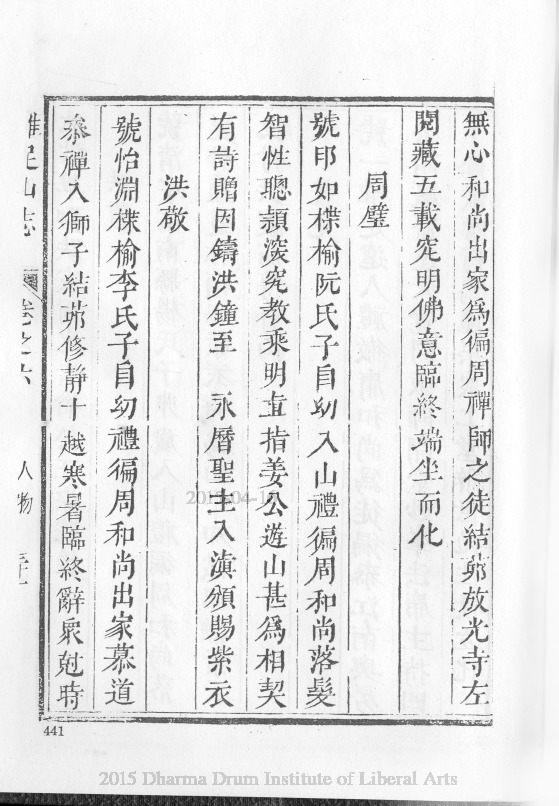 無心和尚出家爲徧周禪師之徒結茆放光寺左
閱藏五載究明佛意臨終端坐而化
周璧
號耶如楪榆阮氏子自幼入山禮徧周和尚落髮
智性聰頴深究教乘明直指姜公遊山甚爲相契
有詩贈因鑄洪鐘至 永曆聖主入滇頒賜紫衣
洪敬
號怡淵楪榆李氏子自幼禮徧周和尚出家慕道
叅禪入獅子結茆修靜十越寒暑臨終辭衆尅時
雞足山志 卷之六 人物
441
2015 Dharma Drum Institute of Liberal Arts